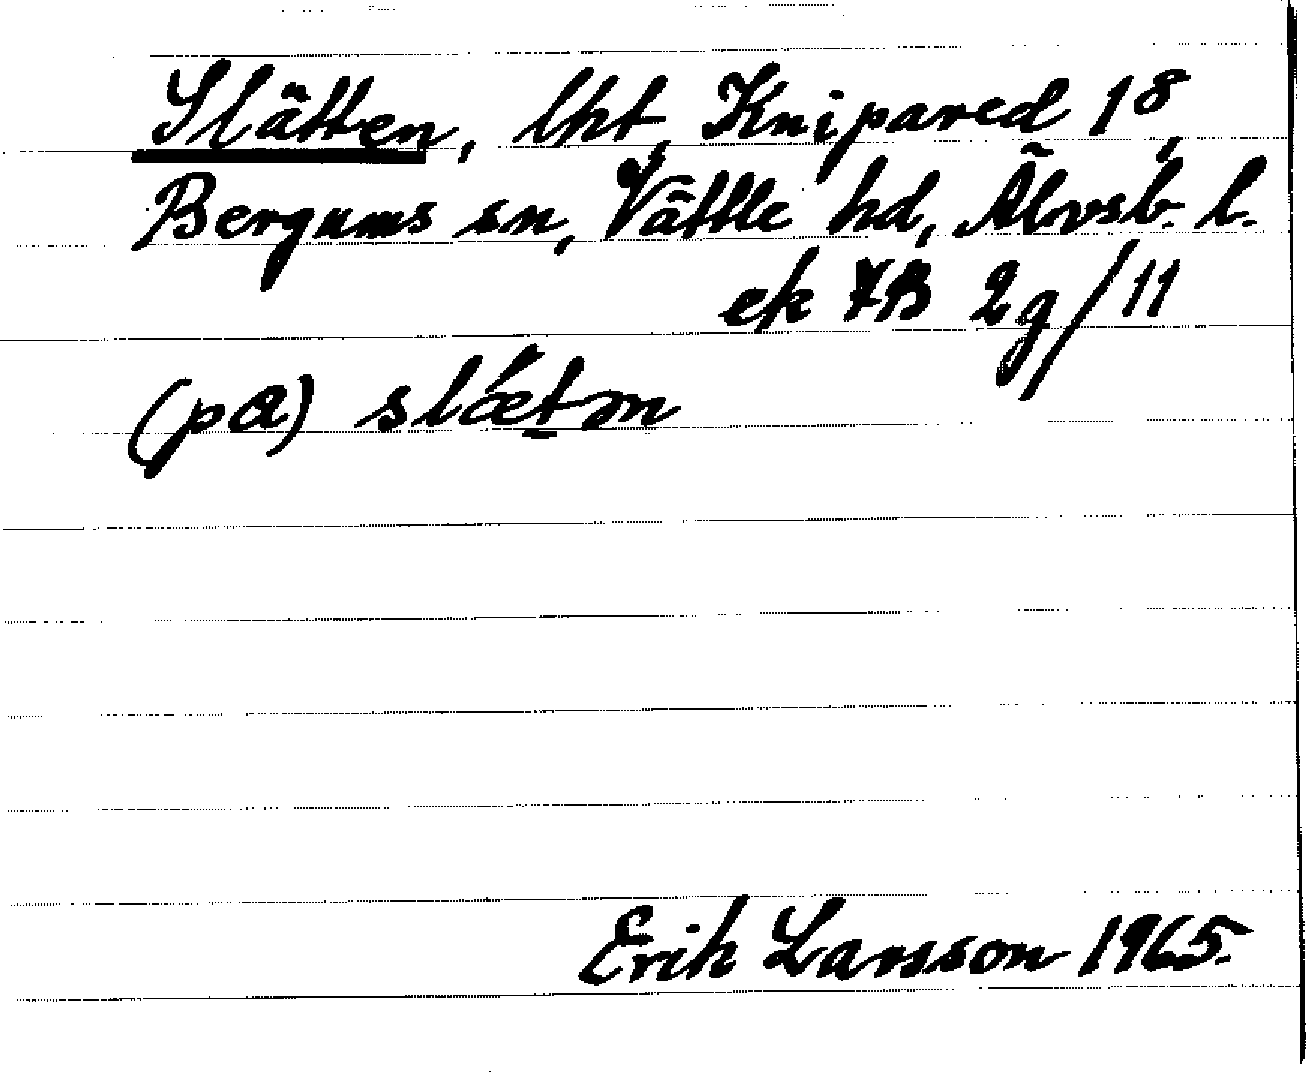 Slätten, lht, Knipared 1⁸,
Bergums sn, Vättle hd, Älvsb. l.
ek 7B 2g/11
(pa) slǽt̠ən
Erik Larsson 1965.